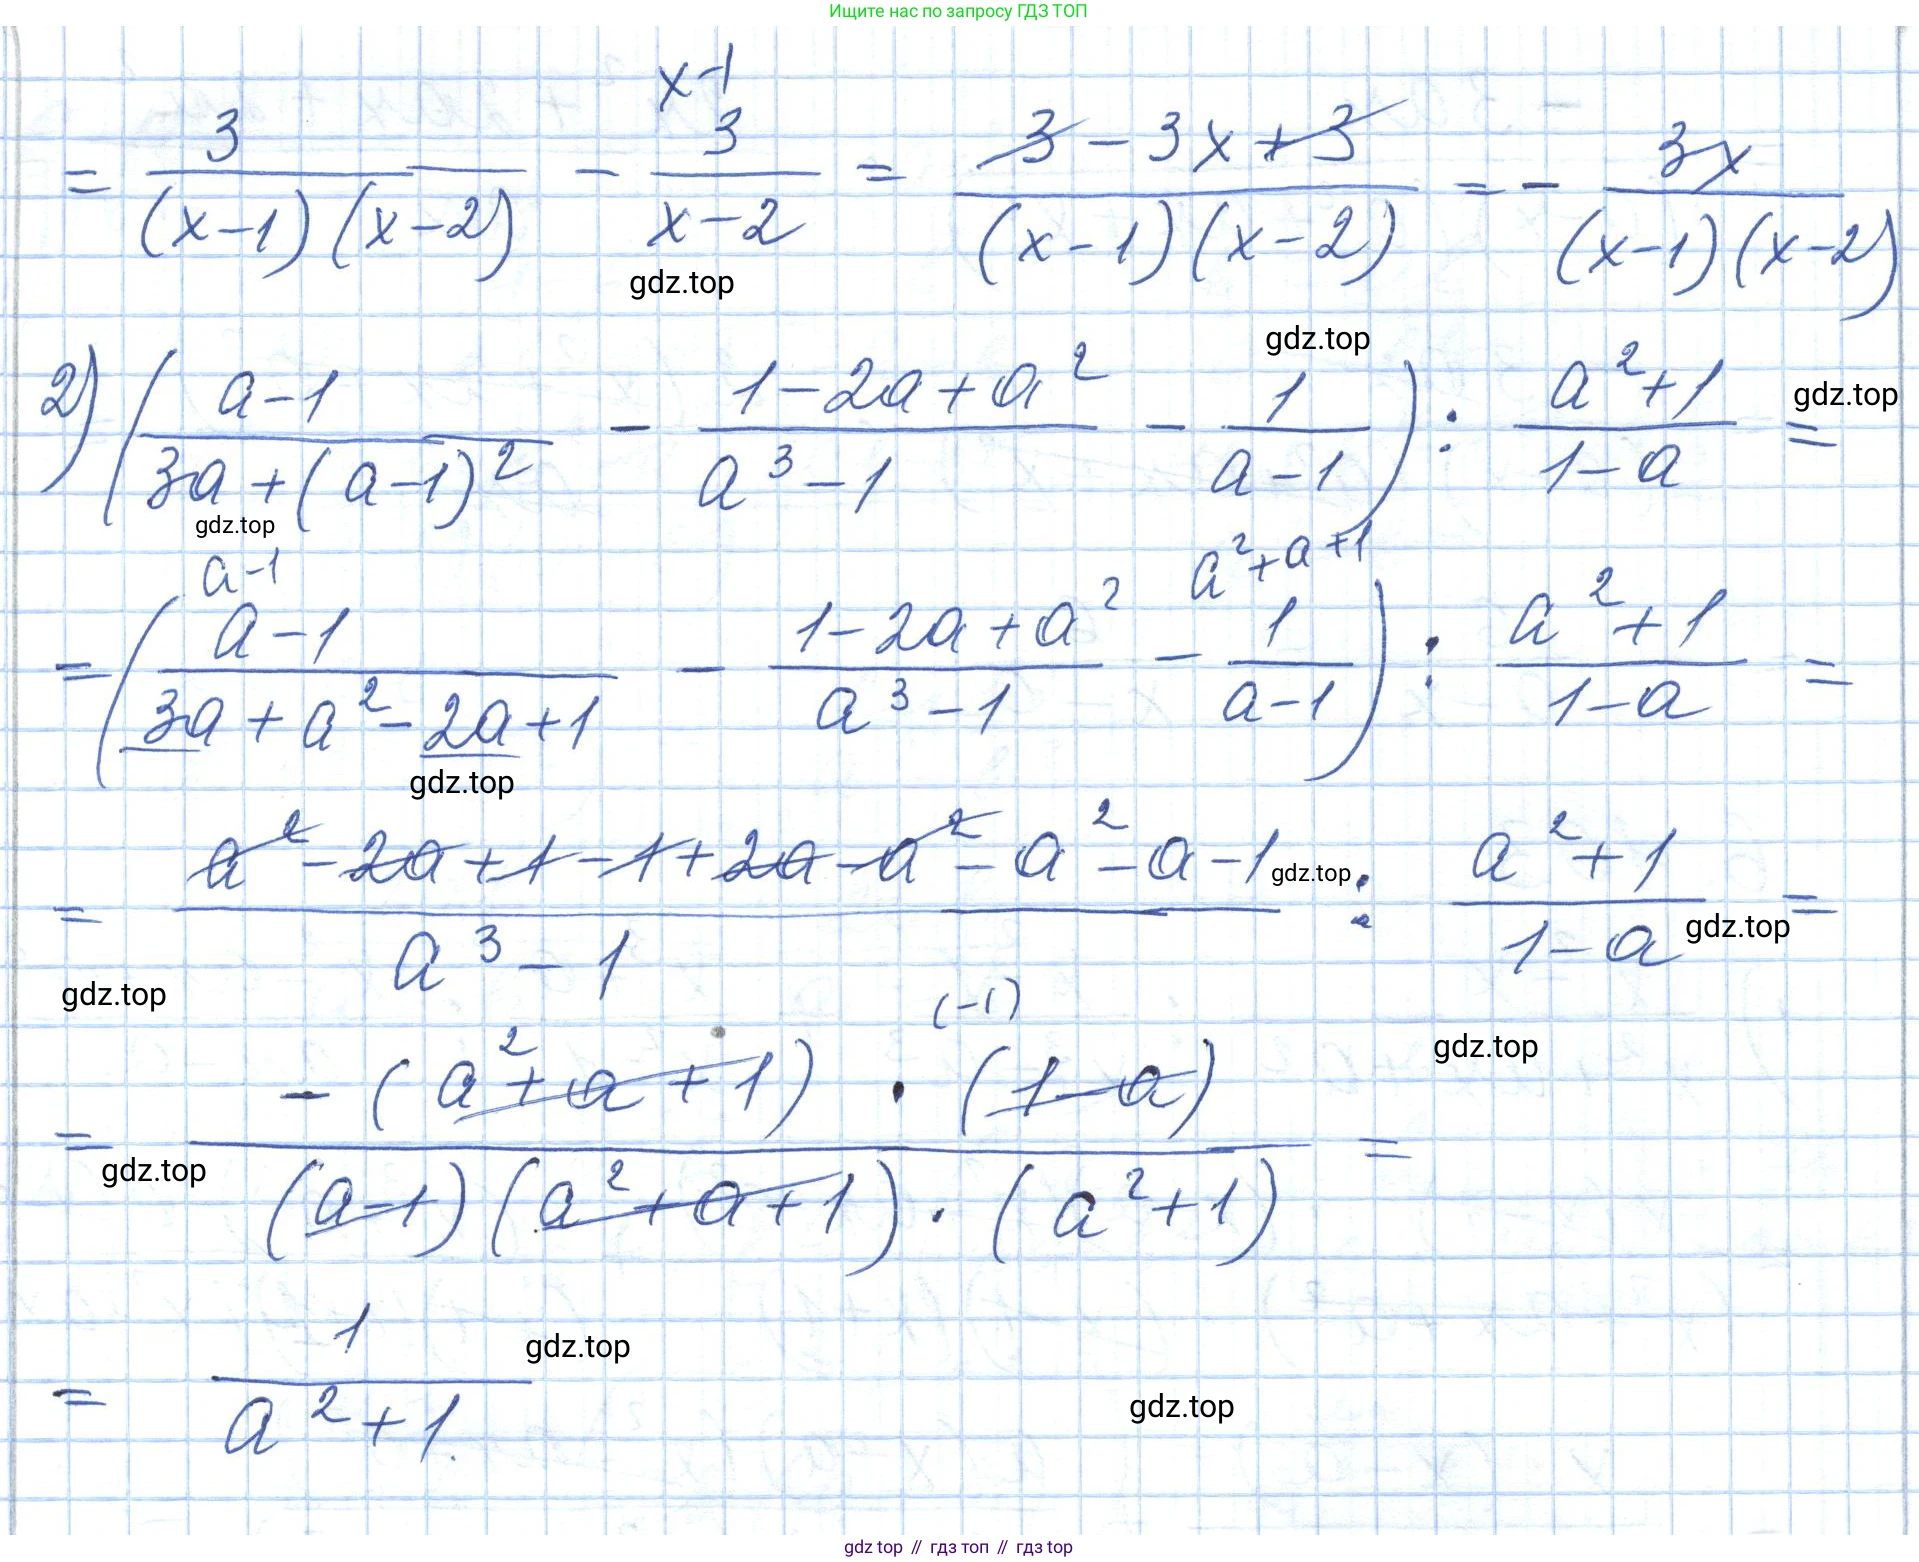 Ищите нас по запросу ГДЗ ТОП
= 3/((x-1)(x-2)) - 3/(x-2) ^(x-1) = (3 - 3x + 3)/((x-1)(x-2)) = - 3x/((x-1)(x-2))
gdz.top
gdz.top
2) ((a-1)/(3a+(a-1)²) - (1-2a+a²)/(a³-1) - 1/(a-1)) : (a²+1)/(1-a) =
gdz.top
gdz.top
= ((a-1)/(3a+a²-2a+1) ^(a-1) - (1-2a+a²)/(a³-1) - 1/(a-1) ^(a²+a+1)) : (a²+1)/(1-a) =
gdz.top
= (a²-2a+1-1+2a-a²-a²-a-1)/(a³-1) : (a²+1)/(1-a) =
gdz.top
gdz.top
gdz.top
= (-(a²+a+1)·(1-a) ^(-1))/((a-1)(a²+a+1)·(a²+1)) =
gdz.top
gdz.top
= 1/(a²+1).
gdz.top
gdz.top
gdz top // гдз топ // gdz top